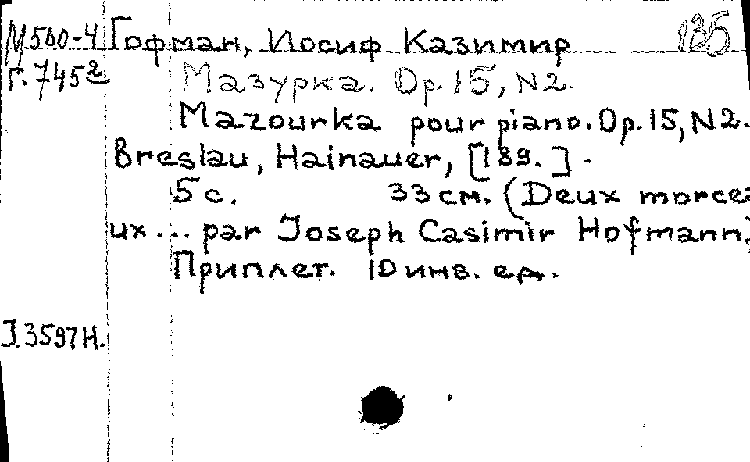 М560-4 Гофман, Иосиф Казимир 135
Г.745² Мазурка. Op.15, N2.
Mazourka pour piano. Op.15, N2.
Breslau, Hainauer, [189. ] -
5 с. 33 см. (Deux morce-
ux... par Joseph Casimir Hofmann.
Приплет. 10 инв. ед.
J.3597H.